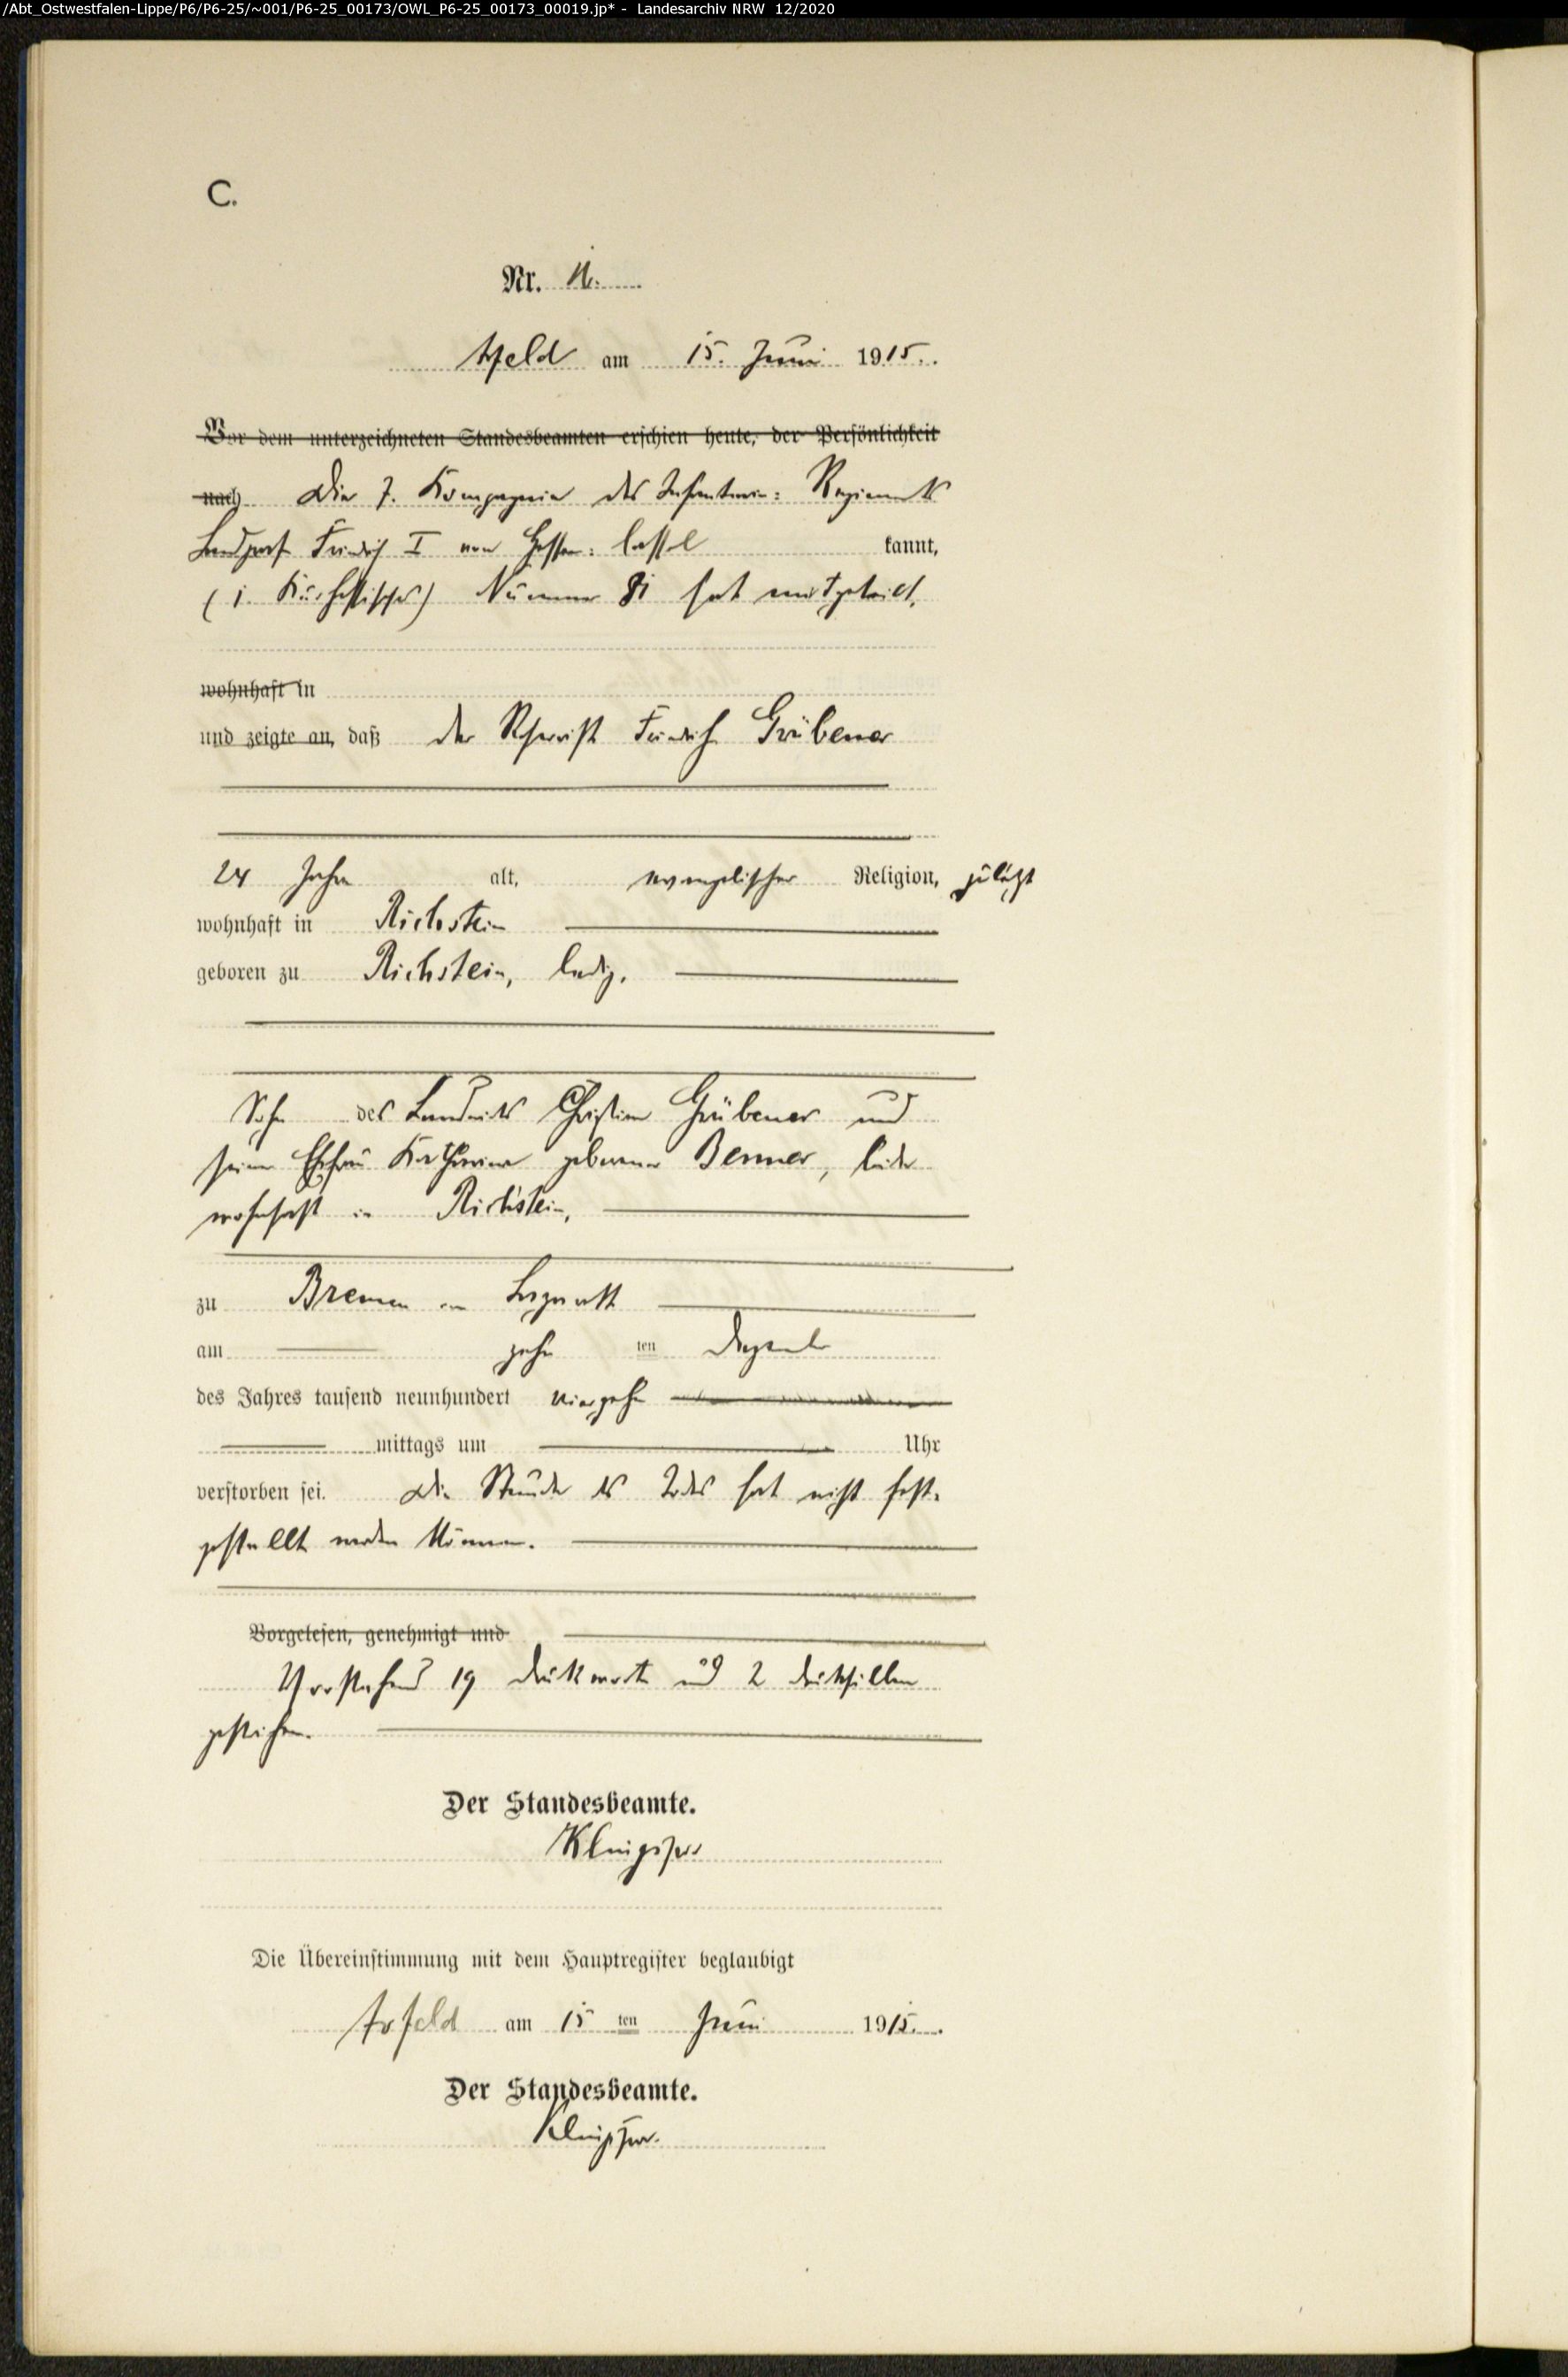 /Abt_Ostwestfalen-Lippe/P6/P6-25/~001/P6-25_00173/OWL_P6-25_00173_00019.jp* - Landesarchiv NRW 12/2020
C.
Nr. 11.
Arfeld am 15. Juni 1915.
Vor dem unterzeichneten Standesbeamten erschien heute, der Persönlichkeit
nach Die 7. Kompagnie des Infanterie: Regiments
Landgraf Friedrich I von Hessen: Cassel kannt,
(1. Kurhessisches) Nummer 81 hat mitgeteilt,
wohnhaft in
und zeigte an, daß der Reservist Friedrich Grübener
24 Jahre alt, evangelischer Religion, zuletzt
wohnhaft in Richstein
geboren zu Richstein, ledig,
Sohn des Landwirts Christian Grübener und
seiner Ehefrau Katharine geborene Benner, beide
wohnhaft in Richstein,
zu Bremen im Lazarett
am zehn ten Dezember
des Jahres tausend neunhundert vierzehn
mittags um Uhr
verstorben sei. Die Stunde des Todes hat nicht fest-
gestellt werden können.
Vorgelesen, genehmigt und
Vorstehend 19 Druckworte und 2 Drucksilben
gestrichen.
Der Standesbeamte.
Die Übereinstimmung mit dem Hauptregister beglaubigt
Arfeld am 15 ten Juni 1915.
Der Standesbeamte.